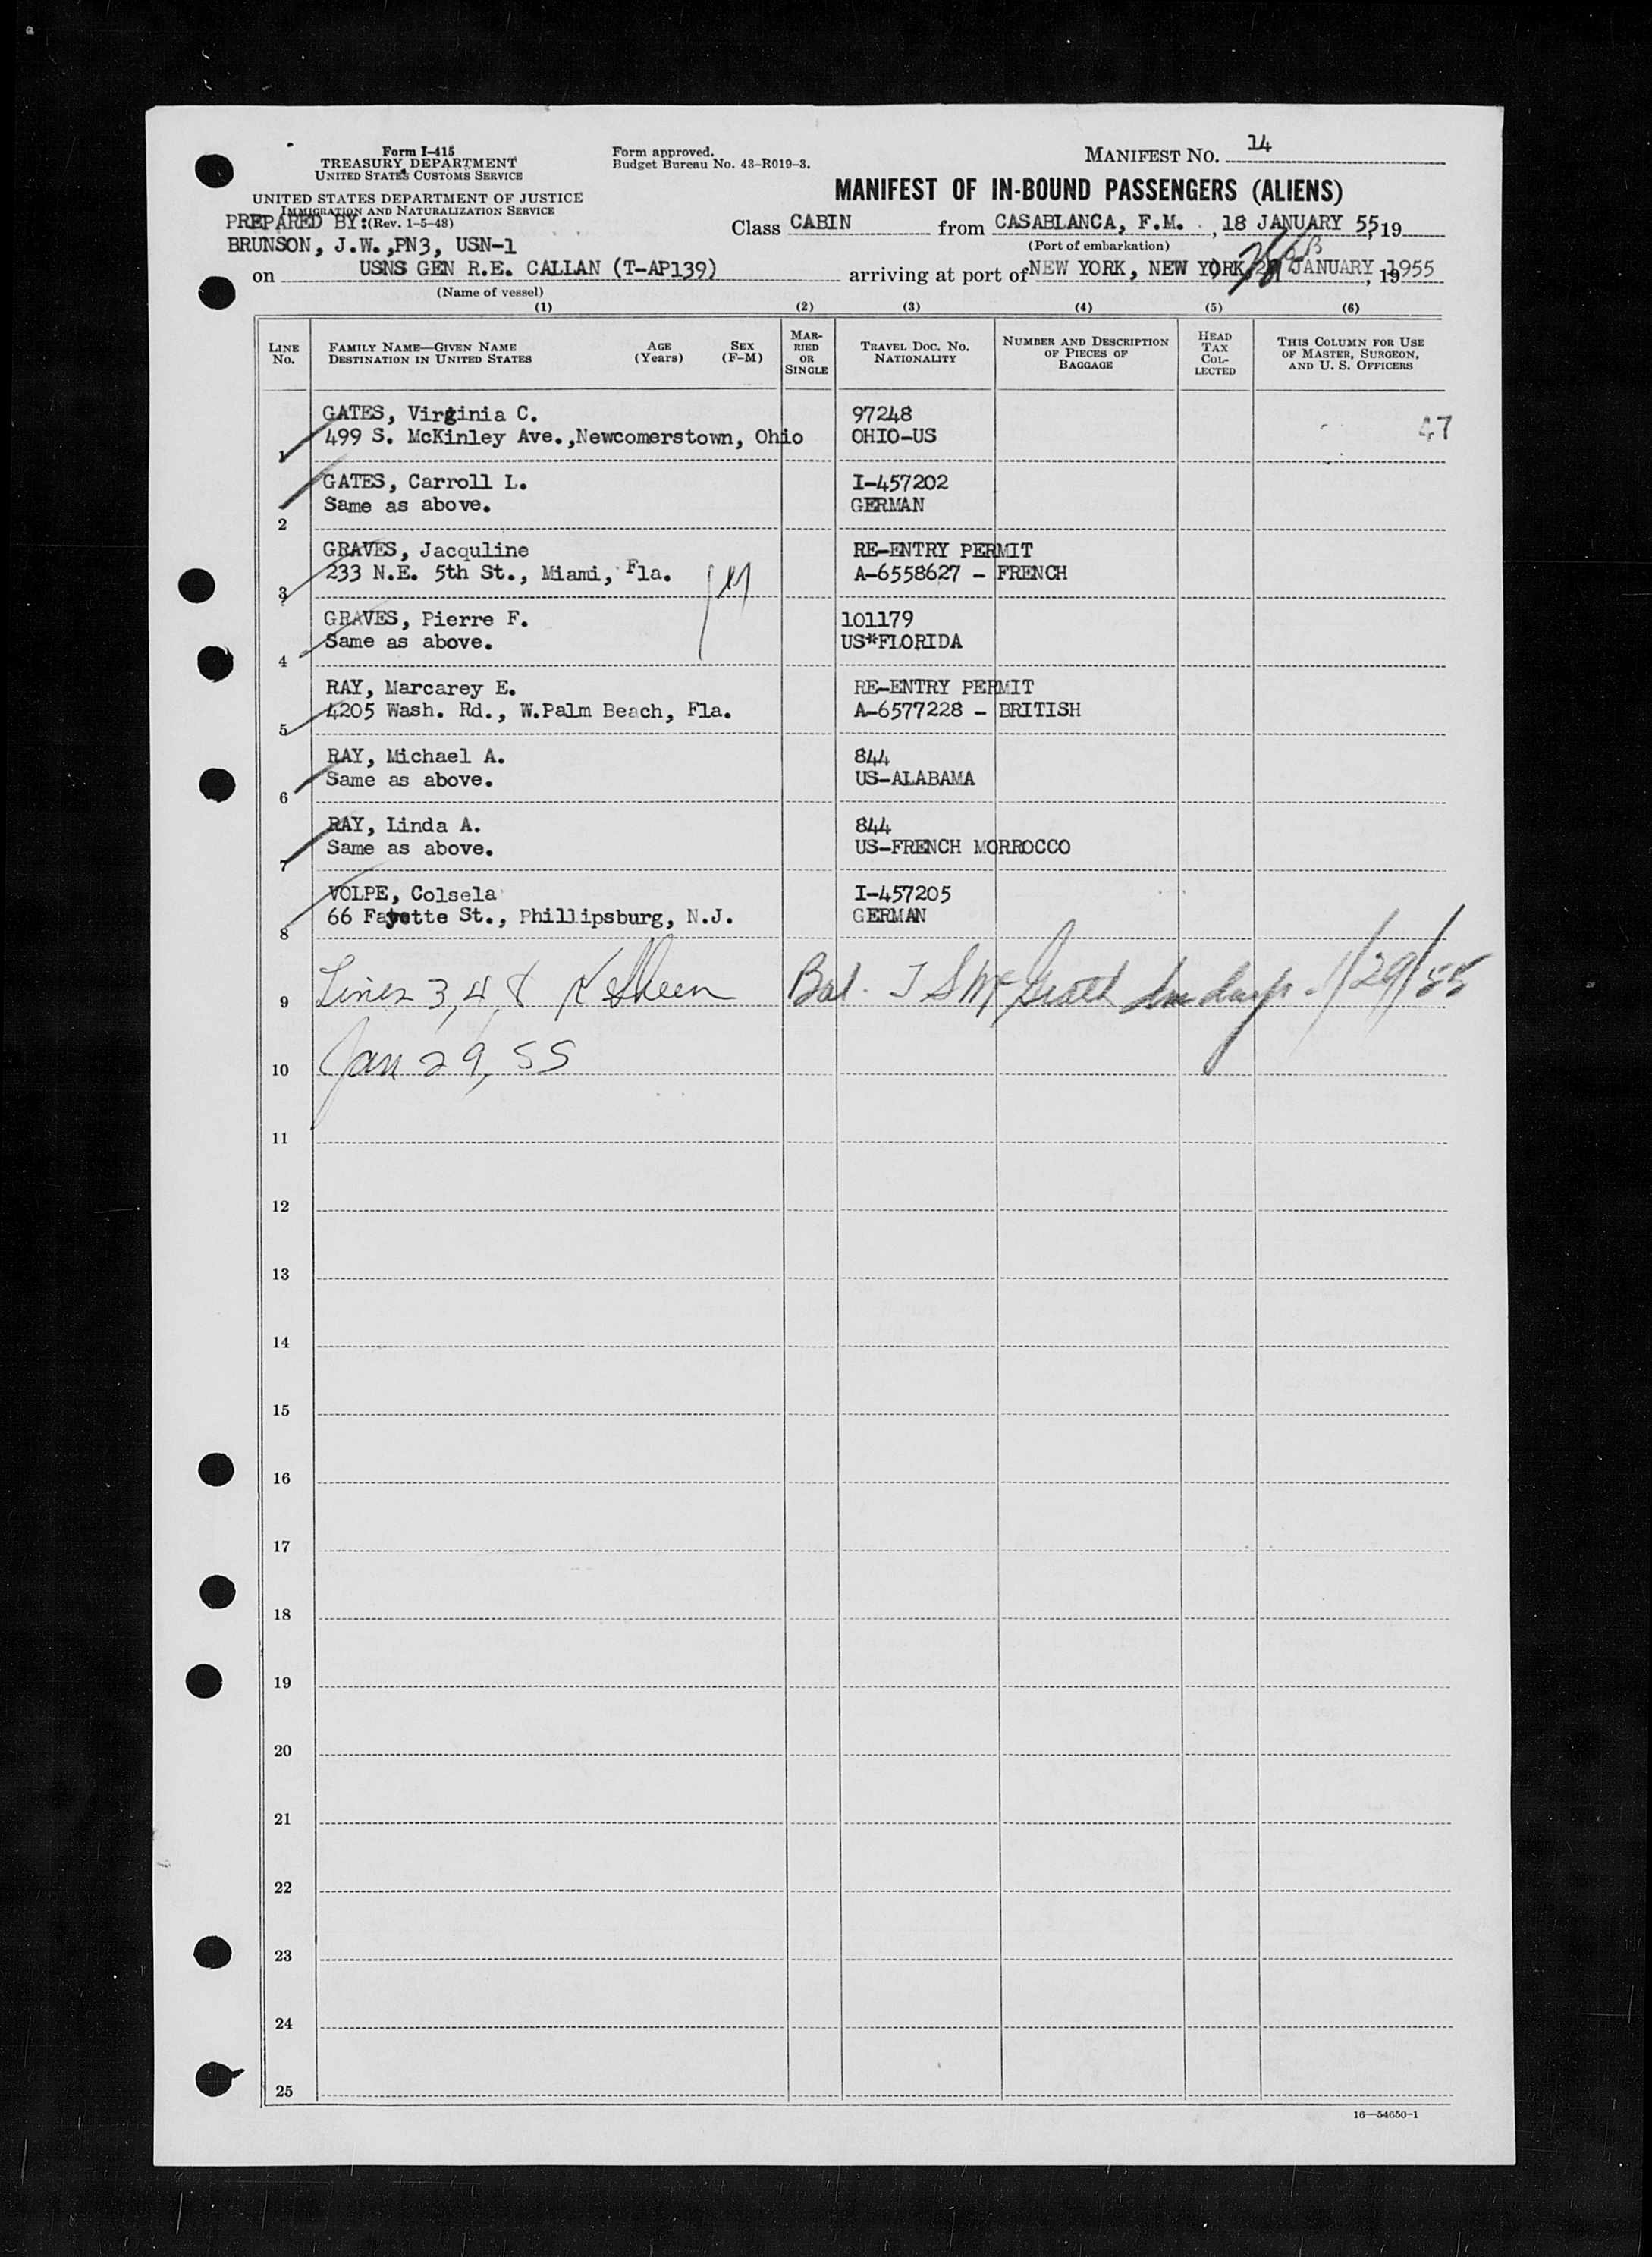 Form I-415
TREASURY DEPARTMENT
UNITED STATES CUSTOMS SERVICE
UNITED STATES DEPARTMENT OF JUSTICE
IMMIGRATION AND NATURALIZATION SERVICE
(Rev. 1-5-48)
PREPARED BY:
BRUNSON, J.W.,PN3, USN-1
Form approved.
Budget Bureau No. 43-R019-3.
MANIFEST NO. 14
MANIFEST OF IN-BOUND PASSENGERS (ALIENS)
Class CABIN from CASABLANCA, F.M. , 18 JANUARY 55, 19
(Port of embarkation)
on USNS GEN R.E. CALLAN (T-AP139) arriving at port of NEW YORK, NEW YORK, JANUARY, 1955
(Name of vessel)
(1) (2) (3) (4) (5) (6)
LINE No. FAMILY NAME—GIVEN NAME DESTINATION IN UNITED STATES AGE (Years) SEX (F-M) MARRIED OR SINGLE TRAVEL DOC. NO. NATIONALITY NUMBER AND DESCRIPTION OF PIECES OF BAGGAGE HEAD TAX COLLECTED THIS COLUMN FOR USE OF MASTER, SURGEON, AND U. S. OFFICERS
GATES, Virginia C. 97248 47
1 499 S. McKinley Ave.,Newcomerstown, Ohio OHIO-US
GATES, Carroll L. I-457202
2 Same as above. GERMAN
GRAVES, Jacquline RE-ENTRY PERMIT
3 233 N.E. 5th St., Miami, Fla. A-6558627 - FRENCH
GRAVES, Pierre F. 101179
4 Same as above. US*FLORIDA
RAY, Marcarey E. RE-ENTRY PERMIT
5 4205 Wash. Rd., W.Palm Beach, Fla. A-6577228 - BRITISH
RAY, Michael A. 844
6 Same as above. US-ALABAMA
RAY, Linda A. 844
7 Same as above. US-FRENCH MORROCCO
VOLPE, Colsela I-457205
8 66 Fayette St., Phillipsburg, N.J. GERMAN
9 Lines 3, 4, 8 Bal. 1/29/55
10 Jan 29, 55
11
12
13
14
15
16
17
18
19
20
21
22
23
24
25
16—54650-1